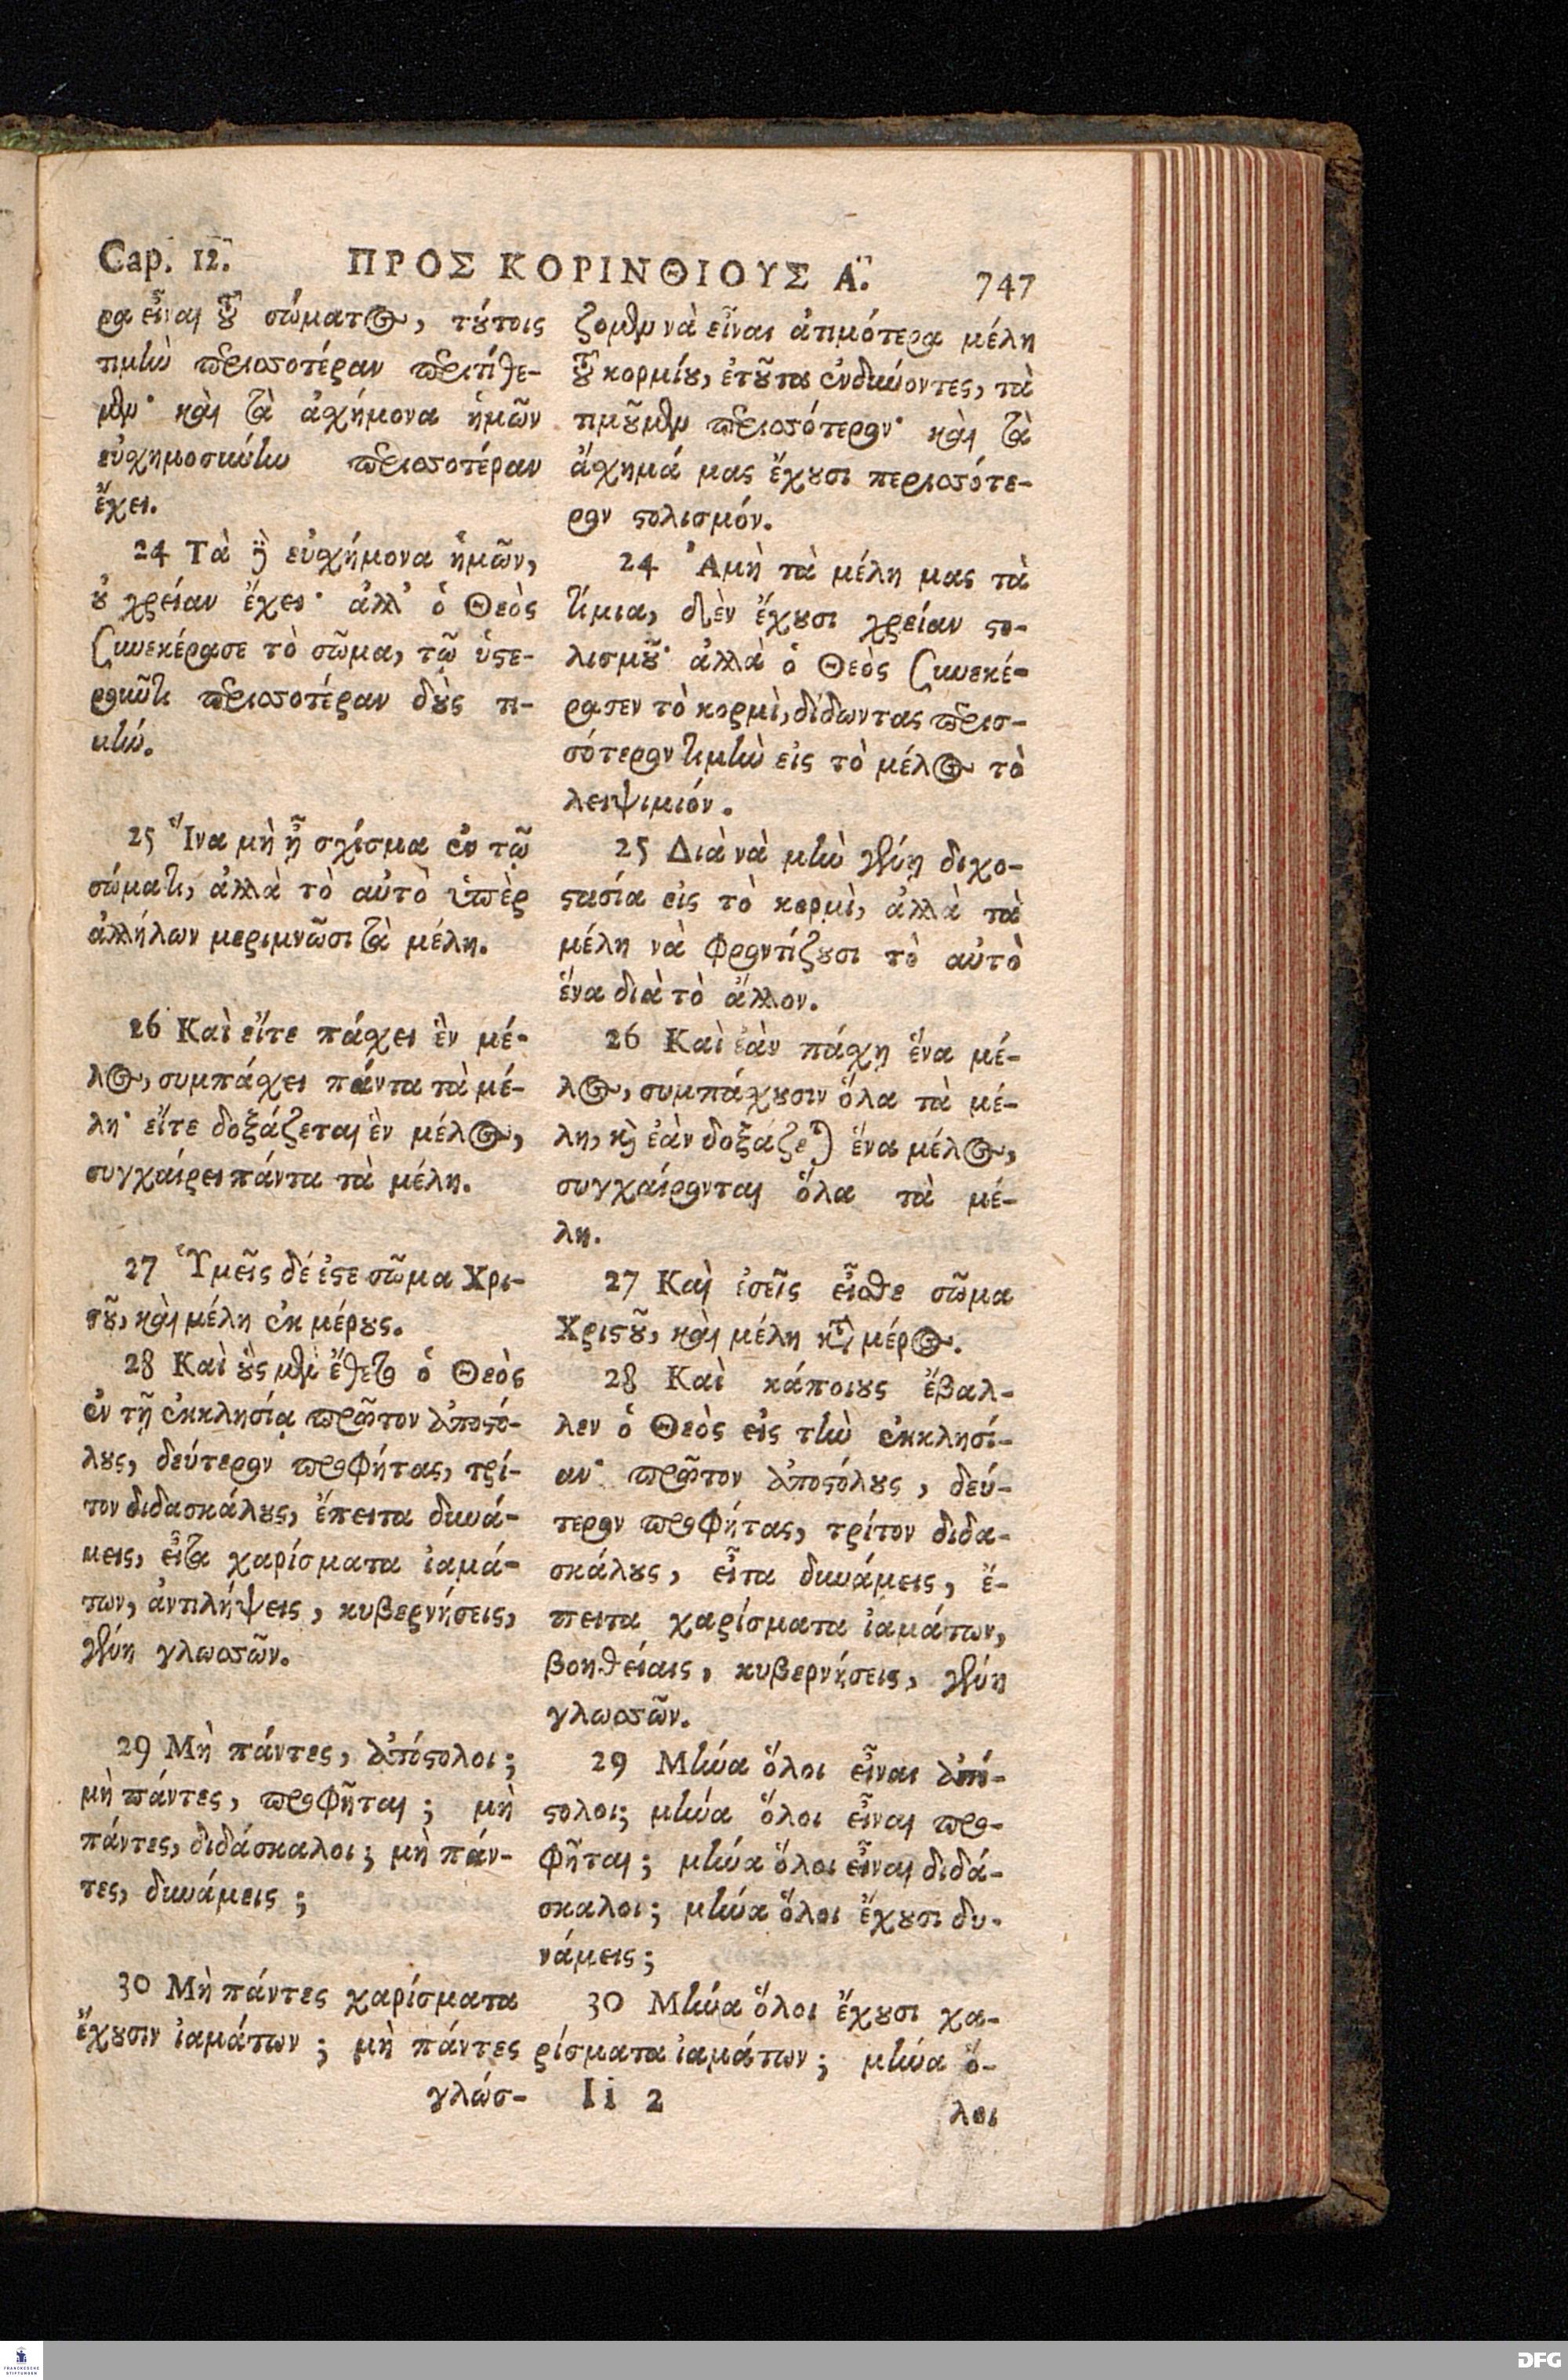 Cap. 12. ΠΡΟΣ ΚΟΡΙΝΘΙΟΥΣ Α. 747
ρα εἶναι τοῦ σώματος, τούτοις
τιμὴν περισσοτέραν περιτίθε-
μεν· καὶ τὰ ἀσχήμονα ἡμῶν
εὐσχημοσύνην περισσοτέραν
ἔχει.
24 Τὰ δὲ εὐσχήμονα ἡμῶν,
οὐ χρείαν ἔχει· ἀλλ' ὁ Θεὸς
συνεκέρασε τὸ σῶμα, τῷ ὑστε-
ροῦντι περισσοτέραν δοὺς τι-
μήν.
25 Ἵνα μὴ ᾖ σχίσμα ἐν τῷ
σώματι, ἀλλὰ τὸ αὐτὸ ὑπὲρ
ἀλλήλων μεριμνῶσι τὰ μέλη.
26 Καὶ εἴτε πάσχει ἓν μέ-
λος, συμπάσχει πάντα τὰ μέ-
λη· εἴτε δοξάζεται ἓν μέλος,
συγχαίρει πάντα τὰ μέλη.
27 Ὑμεῖς δέ ἐστε σῶμα Χρι-
στοῦ, καὶ μέλη ἐκ μέρους.
28 Καὶ οὓς μὲν ἔθετο ὁ Θεὸς
ἐν τῇ ἐκκλησίᾳ πρῶτον ἀποστό-
λους, δεύτερον προφήτας, τρί-
τον διδασκάλους, ἔπειτα δυνά-
μεις, εἶτα χαρίσματα ἰαμά-
των, ἀντιλήψεις, κυβερνήσεις,
γένη γλωσσῶν.
29 Μὴ πάντες, ἀπόστολοι;
μὴ πάντες, προφῆται; μὴ
πάντες, διδάσκαλοι; μὴ πάν-
τες, δυνάμεις;
30 Μὴ πάντες χαρίσματα
ἔχουσιν ἰαμάτων; μὴ πάντες
γλώσ-
ζομεν νὰ εἶναι ἀτιμότερα μέλη
τοῦ κορμίου, ἐτοῦτα ἐνδύοντες, τὰ
τιμοῦμεν περισσότερον· καὶ τὰ
ἄσχημά μας ἔχουσι περισσότε-
ρον στολισμόν.
24 Ἀμὴ τὰ μέλη μας τὰ
τίμια, δὲν ἔχουσι χρείαν στο-
λισμοῦ· ἀλλὰ ὁ Θεὸς συνεκέ-
ρασεν τὸ κορμὶ, δίδωντας περισ-
σότερον τιμὴν εἰς τὸ μέλος τὸ
λειψιμιόν.
25 Διὰ νὰ μὴν γένῃ διχο-
στασία εἰς τὸ κορμὶ, ἀλλὰ τὰ
μέλη νὰ φροντίζουσι τὸ αὐτὸ
ἕνα διὰ τὸ ἄλλον.
26 Καὶ ἐὰν πάσχῃ ἕνα μέ-
λος, συμπάσχουσιν ὅλα τὰ μέ-
λη, καὶ ἐὰν δοξάζεται ἕνα μέλος,
συγχαίρονται ὅλα τὰ μέ-
λη.
27 Καὶ ἐσεῖς εἶσθε σῶμα
Χριστοῦ, καὶ μέλη κατὰ μέρος.
28 Καὶ κάποιους ἔβαλ-
λεν ὁ Θεὸς εἰς τὴν ἐκκλησί-
αν· πρῶτον ἀποστόλους, δεύ-
τερον προφήτας, τρίτον διδα-
σκάλους, εἶτα δυνάμεις, ἔ-
πειτα χαρίσματα ἰαμάτων,
βοηθείαις, κυβερνήσεις, γένη
γλωσσῶν.
29 Μήνα ὅλοι εἶναι ἀπό-
στολοι; μήνα ὅλοι εἶναι προ-
φῆται; μήνα ὅλοι εἶναι διδά-
σκαλοι; μήνα ὅλοι ἔχουσι δυ-
νάμεις;
30 Μήνα ὅλοι ἔχουσι χα-
ρίσματα ἰαμάτων; μήνα ὅ-
Ii 2
λοι
FRANCKESCHE
STIFTUNGEN
DFG